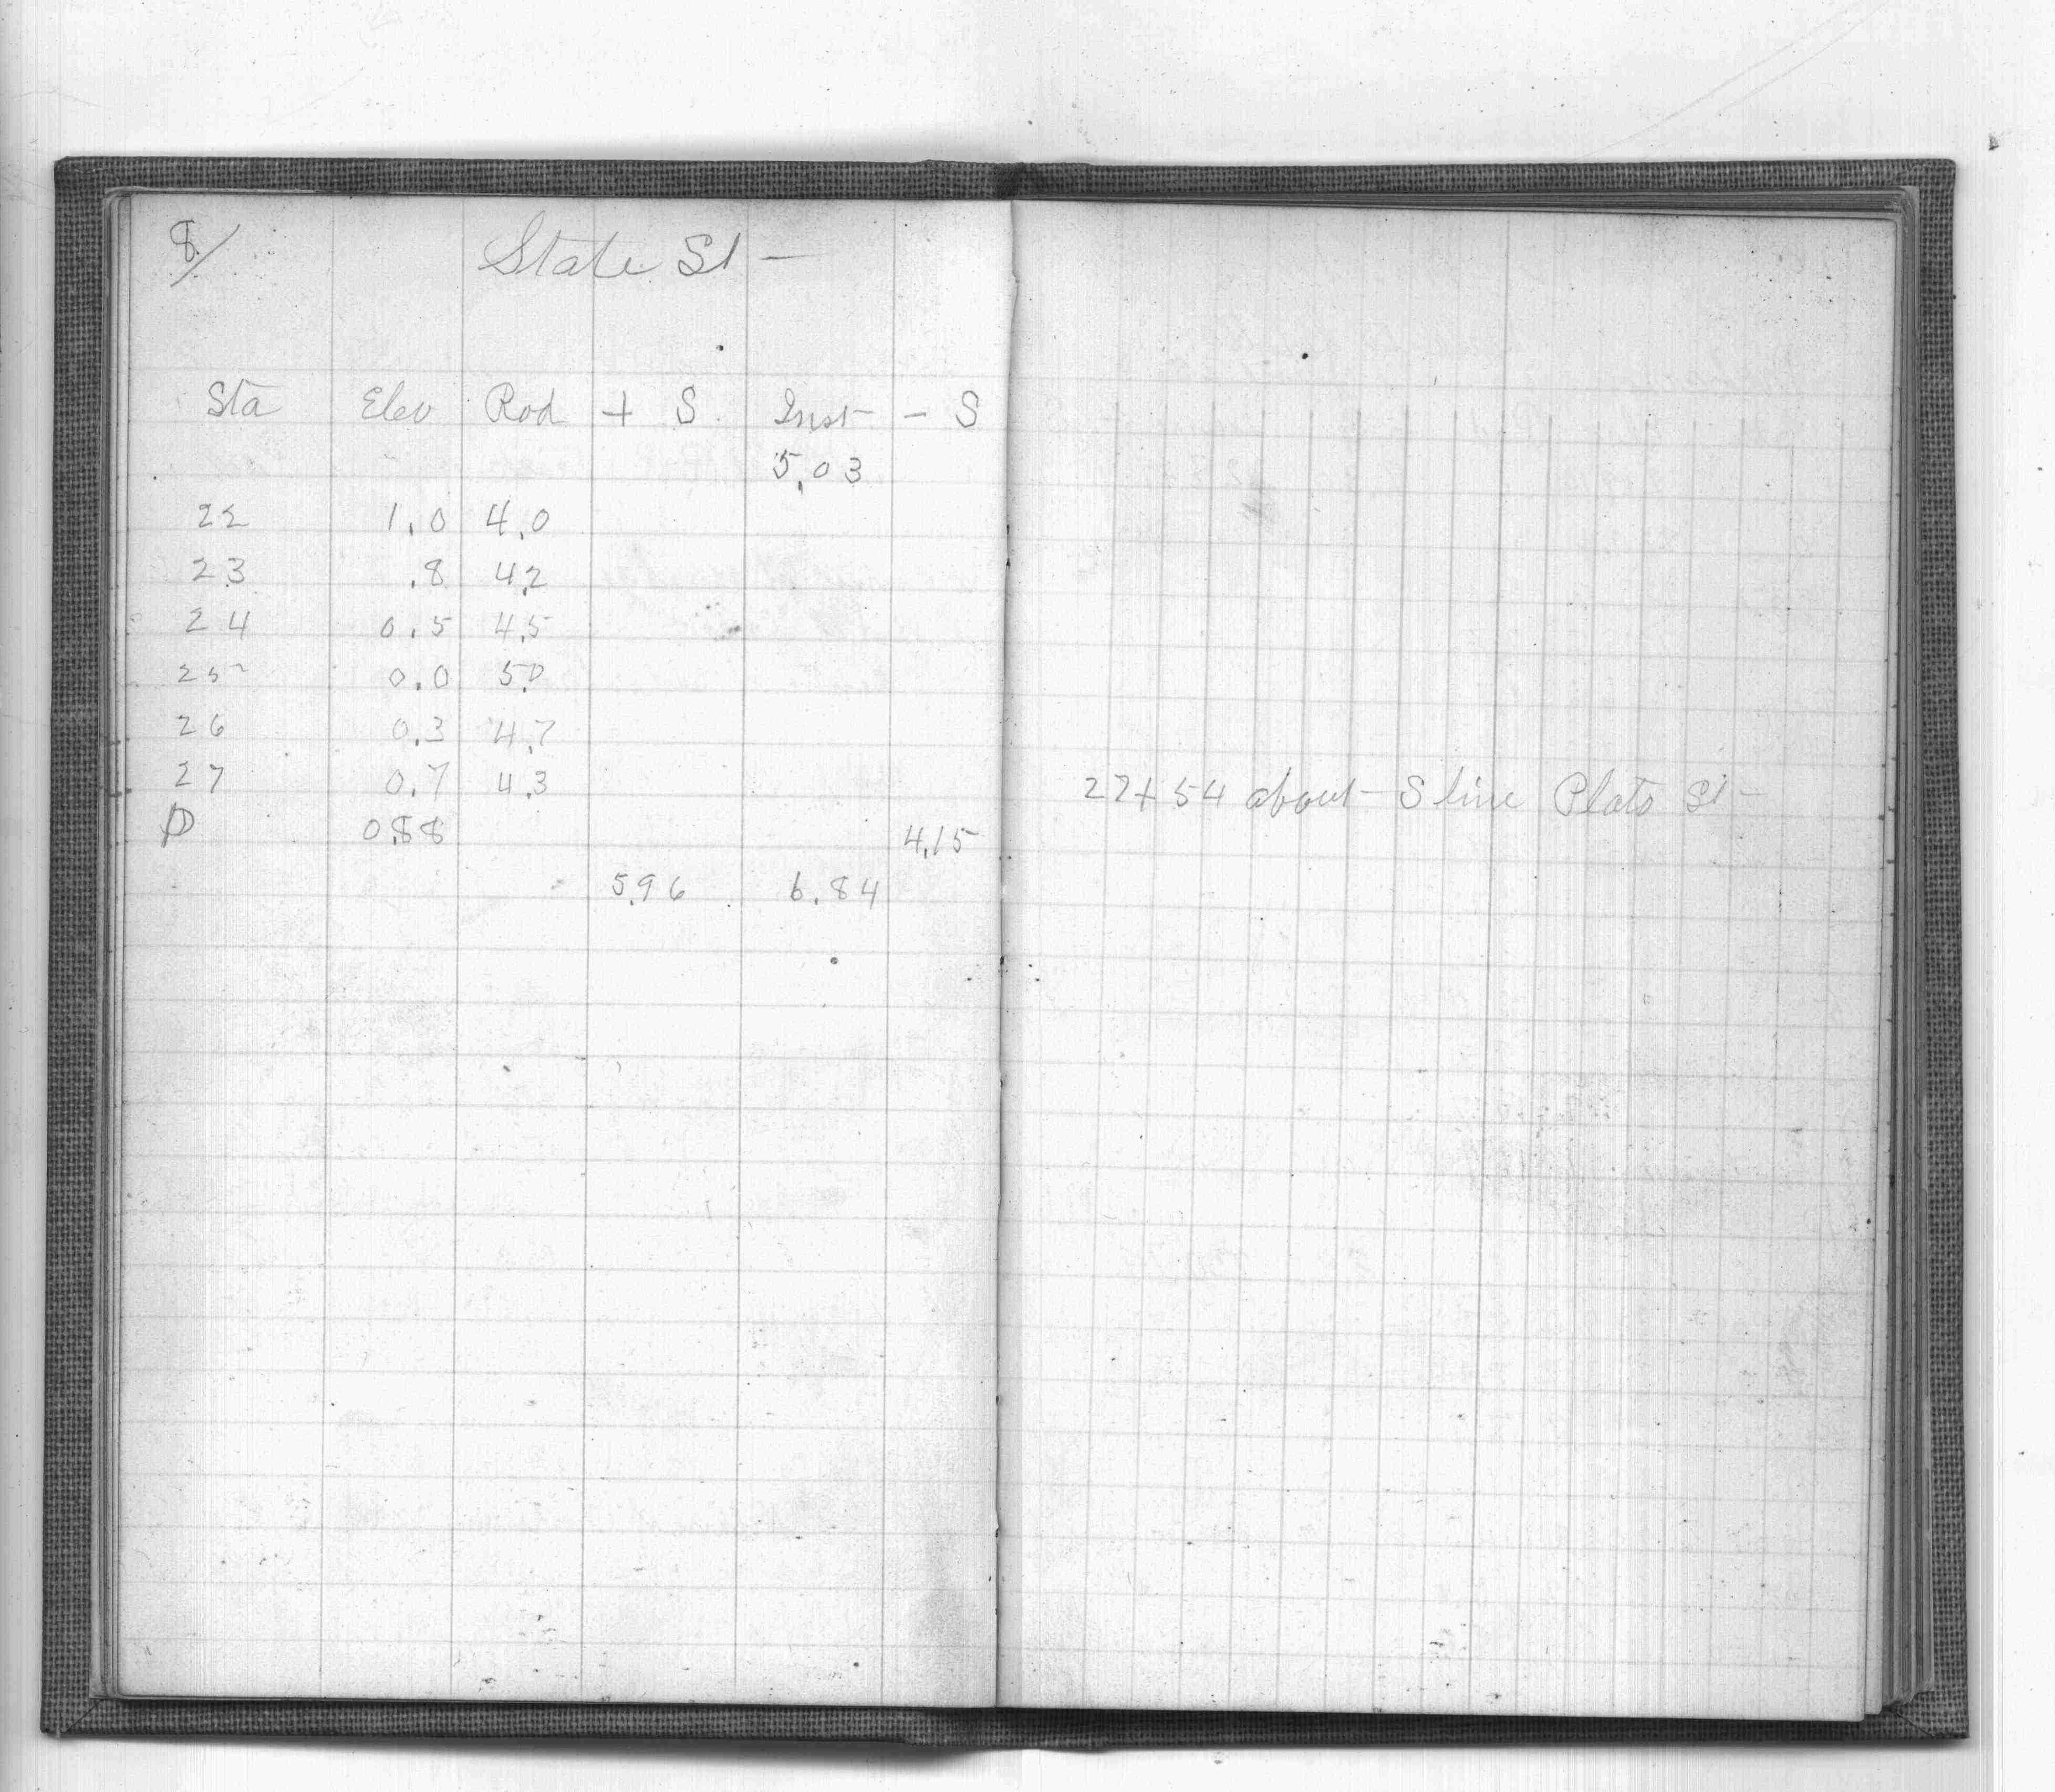 8/
State St
Sta Elev Rod + S Inst - S
5.03
22 1.0 4.0
23 .8 4.2
24 0.5 4.5
25 0.0 5.0
26 0.3 4.7
27 0.7 4.3 27+54 about S line Plato St
0.88 4.15
5.96 6.84